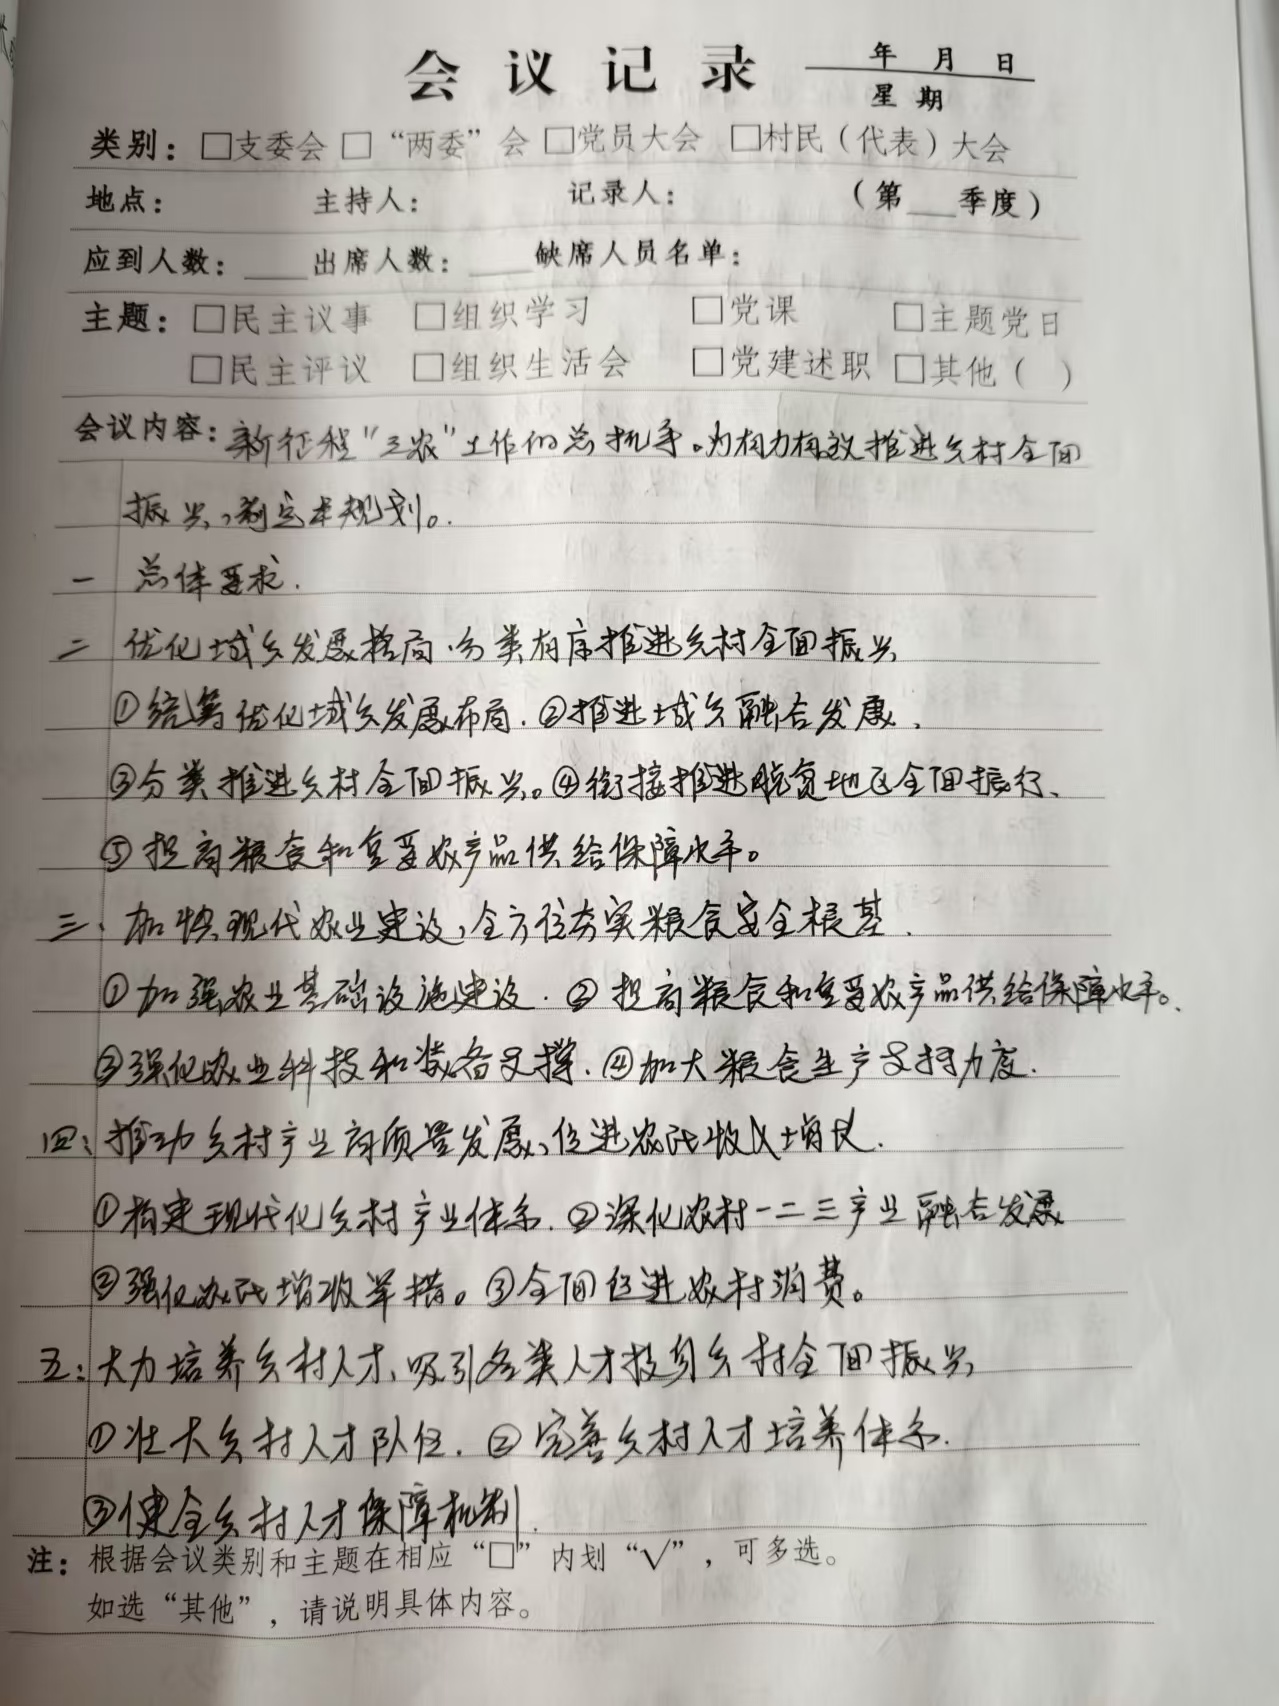 会议记录 年 月 日
星期
类别：□支委会 □“两委”会 □党员大会 □村民（代表）大会
地点： 主持人： 记录人： （第___季度）
应到人数：___出席人数：___缺席人员名单：
主题：□民主议事 □组织学习 □党课 □主题党日
□民主评议 □组织生活会 □党建述职 □其他（ ）
会议内容：新征程“三农”工作的总抓手。为有力有效推进乡村全面
振兴，制定本规划。
一 总体要求.
二 优化城乡发展格局.分类有序推进乡村全面振兴
①统筹优化城乡发展布局.②推进城乡融合发展.
③分类推进乡村全面振兴。④衔接推进脱贫地区全面振行、
⑤提高粮食和重要农产品供给保障水平。
三、加快现代农业建设，全方位夯实粮食安全根基.
①加强农业基础设施建设.②提高粮食和重要农产品供给保障水平。
③强化农业科技和装备支撑.④加大粮食生产支持力度.
四：推动乡村产业高质量发展，促进农民收入增长.
①构建现代化乡村产业体系.②深化农村一二三产业融合发展
②强化农民增收举措。③全面促进农村消费。
五：大力培养乡村人才、吸引各类人才投身乡村全面振兴
①壮大乡村人才队伍.②完善乡村人才培养体系.
③健全乡村人才保障机制.
注：根据会议类别和主题在相应“□”内划“√”，可多选。
如选“其他”，请说明具体内容。